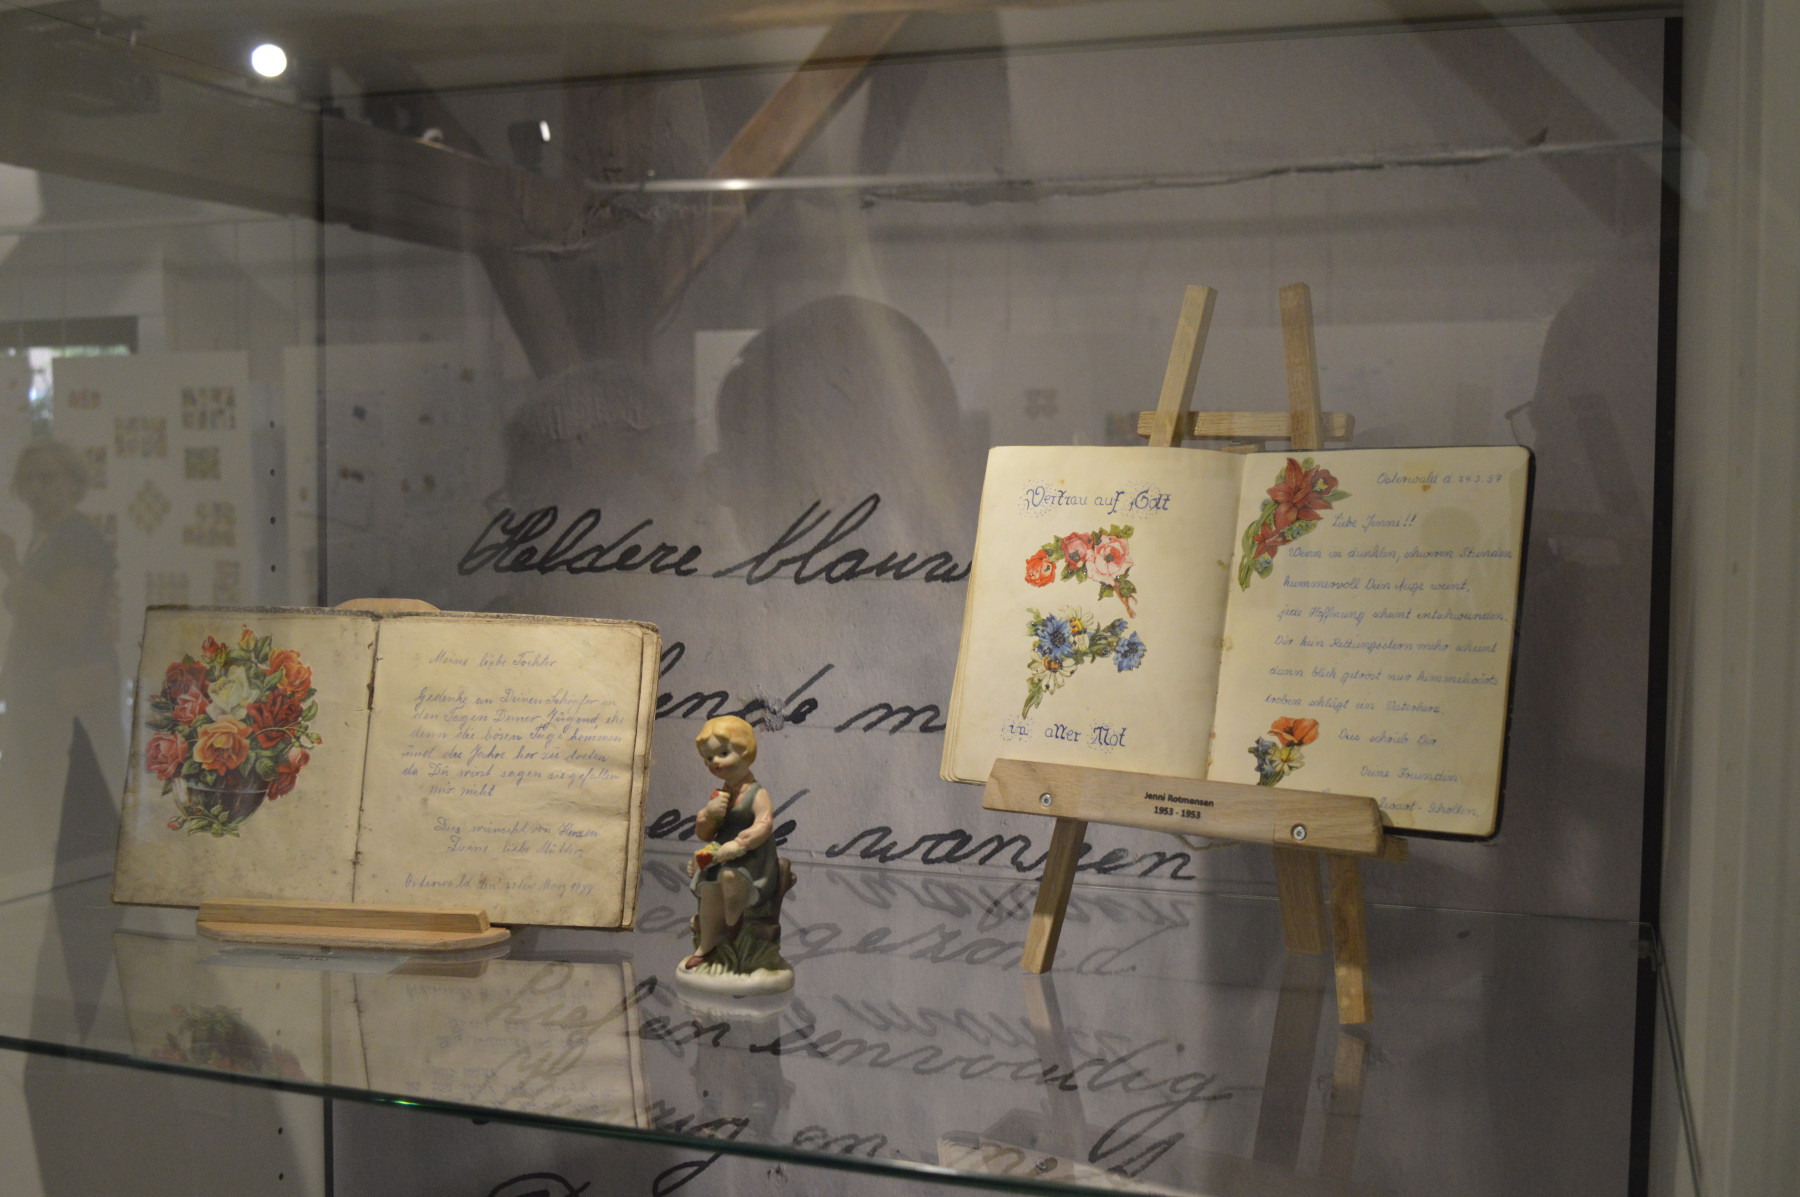 Heldere blauw
m
ende wangen
gezond
Lief en eenvoudig
en
Meine liebe Tochter
Gedenke an Deinen Schöpfer in
den Tagen Deiner Jügend ehe
denn die bösen Tage kommen
ünd die Jahre her zü treten
da Dü wirst sagen sie gefallen
mir nicht
Dies wünscht von Herzen
Deine liebe Mütter
Osterwald den
Vertrau auf Gott
in aller Not
Osterwald d. 57
Liebe Jenni!!
Wenn in dunklen, schweren Stunden
kummervoll Dein Auge weint,
jede Hoffnung scheint entschwunden
Dir kein Rettungsstern mehr scheint
dann blick getrost nur himmelwärts
droben schlägt ein Vaterherz.
Dies schrieb Dir
Deine Freundin
Jenni Rotmensen
1953 - 1953